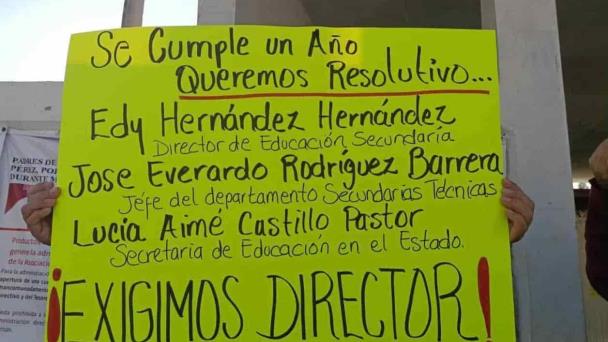 Se Cumple un Año
Queremos Resolutivo...
Edy Hernández Hernández
Director de Educación Secundaria
Jose Everardo Rodríguez Barrera
Jefe del departamento Secundarias Técnicas
Lucía Aimé Castillo Pastor
Secretaria de Educación en el Estado.
¡EXIGIMOS DIRECTOR!
PADRES DE
PÉREZ, POR
DURANTE